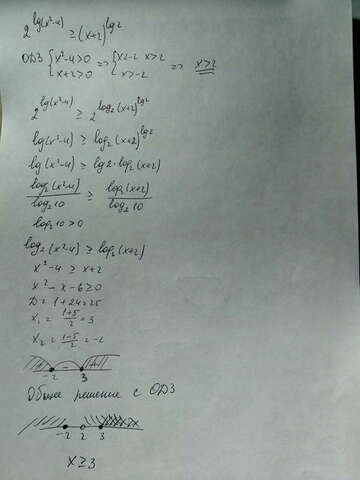 2^{lg(x²-4)} ≥ (x+2)^{lg2}
ОДЗ { x²-4>0 x+2>0 => { x<-2 x>2 x>-2 => x>2
2^{lg(x²-4)} ≥ 2^{log₂(x+2)^{lg2}}
lg(x²-4) ≥ log₂(x+2)^{lg2}
lg(x²-4) ≥ lg2·log₂(x+2)
log₂(x²-4)/log₂10 ≥ log₂(x+2)/log₂10
log₂10>0
log₂(x²-4) ≥ log₂(x+2)
x²-4 ≥ x+2
x²-x-6≥0
D=1+24=25
x₁=(1+5)/2=3
x₂=(1-5)/2=-2
+ - +
-2 3
Общее решение с ОДЗ
-2 2 3
x≥3